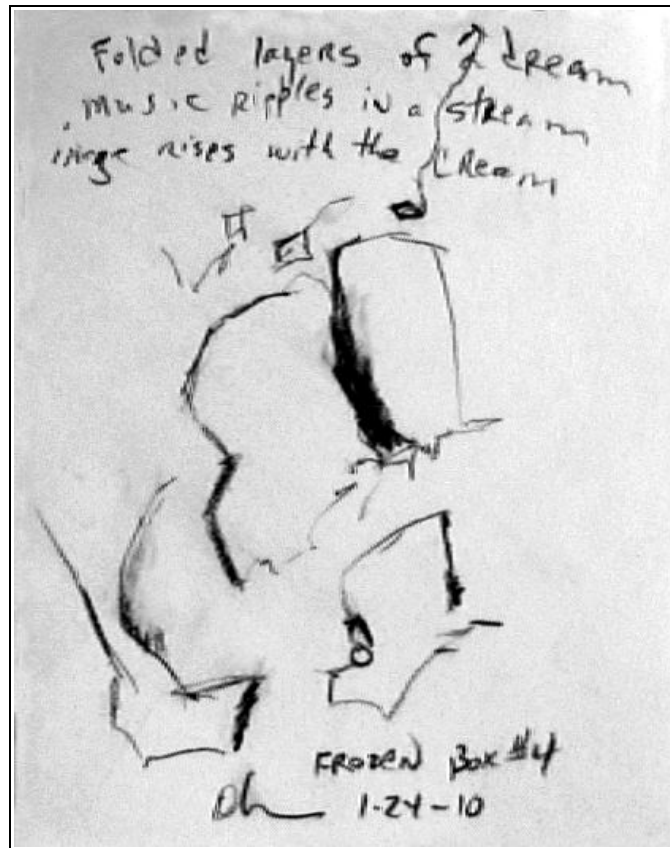 Folded layers of a dream
music Ripples in a stream
rises with the cream
FROZEN Box #4
1-24-10